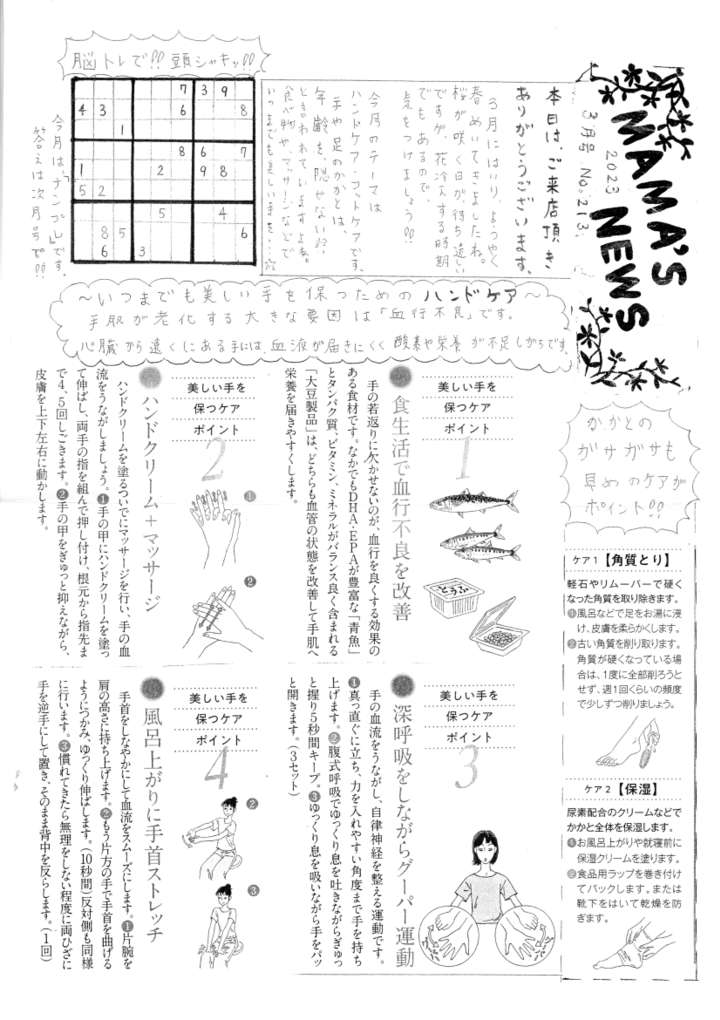 MAMA'S
NEWS
2023
3月号 No.213.
本日は、ご来店頂き
ありがとうございます。
3月にはいり、ようやく
春めいてきましたね。
桜が咲く日が待ち遠しい
ですが、花冷えする時期
でもあるので、
気をつけましょう!!
今月のテーマは
ハンドケア・フットケアです。
手や足のかかとは、
年齢を隠せない??
と言われていますよね。
食べ物やマッサージなどで
いつまでも美しい手を…
脳トレで!! 頭シャキッ!!
7 3 9
4 3 6 8
1
8 6 7
1 2 9 8
5 2
5 4
8 5 6
6 3
今月は「ナンプレ」です。
答えは次月号で!!
～いつまでも美しい手を保つためのハンドケア～
手肌が老化する大きな要因は「血行不良」です。
心臓から遠くにある手には、血液が届きにくく酸素や栄養が不足しがちです。
美しい手を
保つケア
ポイント
1
食生活で血行不良を改善
手の若返りに欠かせないのが、血行を良くする効果の
ある食材です。なかでもDHA・EPAが豊富な「青魚」
とタンパク質、ビタミン、ミネラルがバランス良く含まれる
「大豆製品」は、どちらも血管の状態を改善して手肌へ
栄養を届きやすくします。
とうふ
美しい手を
保つケア
ポイント
2
ハンドクリーム＋マッサージ
ハンドクリームを塗るついでにマッサージを行い、手の血
流をうながしましょう。❶手の甲にハンドクリームを塗っ
て伸ばし、両手の指を組んで押し付け、根元から指先ま
で4、5回しごきます。❷手の甲をぎゅっと抑えながら、
皮膚を上下左右に動かします。
❶
❷
美しい手を
保つケア
ポイント
3
深呼吸をしながらグーパー運動
手の血流をうながし、自律神経を整える運動です。
❶真っ直ぐに立ち、力を入れやすい角度まで手を持ち
上げます。❷腹式呼吸でゆっくり息を吐きながらぎゅっ
と握り5秒間キープ。❸ゆっくり息を吸いながら手をパッ
と開きます。（3セット）
美しい手を
保つケア
ポイント
4
風呂上がりに手首ストレッチ
手首をしなやかにして血流をスムーズにします。❶片腕を
肩の高さに持ち上げます。❷もう片方の手で手首を曲げる
ようにつかみ、ゆっくり伸ばします。（10秒間）反対側も同様
に行います。❸慣れてきたら無理をしない程度に両ひざに
手を逆手にして置き、そのまま背中を反らします。（1回）
❷
❸
かかとの
ガサガサも
早めのケアが
ポイント!!
ケア1【角質とり】
軽石やリムーバーで硬く
なった角質を取り除きます。
❶風呂などで足をお湯に浸
け、皮膚を柔らかくします。
❷古い角質を削り取ります。
角質が硬くなっている場
合は、1度に全部削ろうと
せず、週1回くらいの頻度
で少しずつ削りましょう。
ケア2【保湿】
尿素配合のクリームなどで
かかと全体を保湿します。
❶お風呂上がりや就寝前に
保湿クリームを塗ります。
❷食品用ラップを巻き付け
てパックします。または
靴下をはいて乾燥を防
ぎます。